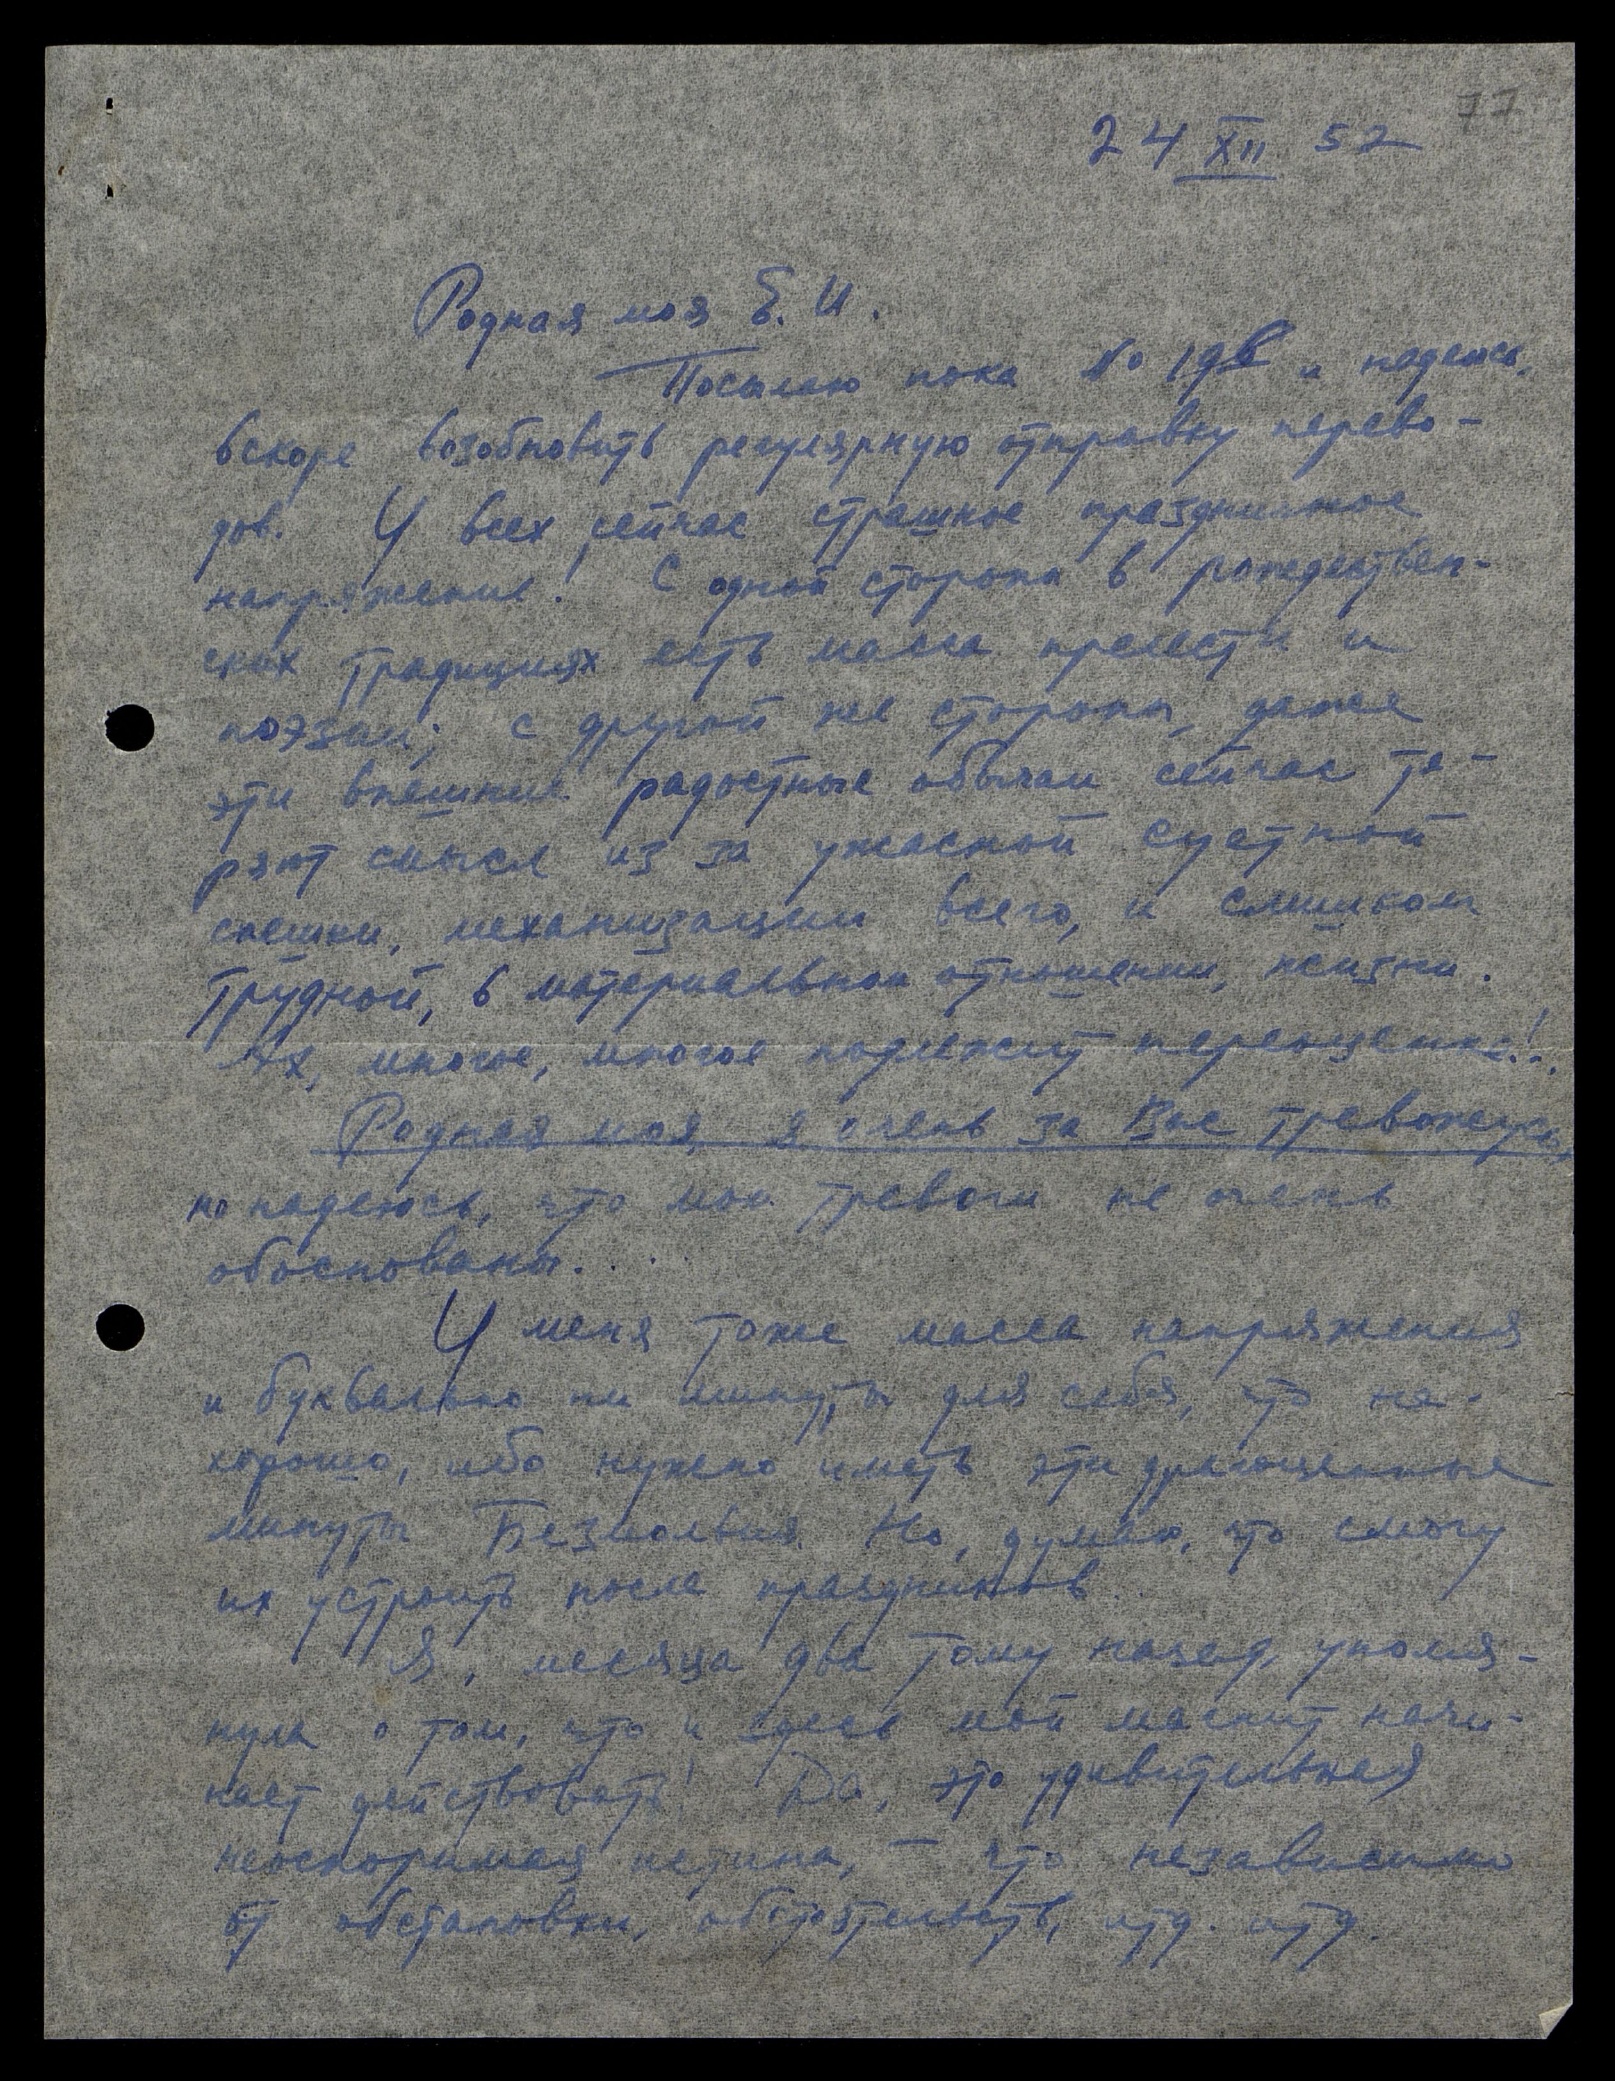 77
24 XII 52
Родная моя Е. И.
Посылаю пока № 198 и надеюсь,
вскоре возобновить регулярную отправку перево-
дов. У всех сейчас страшное праздничное
напряжение. С одной стороны в рождествен-
ских традициях есть масса прелести и
поэзии; с другой же стороны, даже
эти внешние радостные обычаи сейчас те-
ряют смысл из за ужасной суетной
спешки, механизации всего, и слишком
трудной, в материальном отношении, жизни.
Ах, многое, многое подлежит переоценке!.
Родная моя, я очень за Вас тревожусь,
но надеюсь, что мои тревоги не очень
обоснованы.....
У меня тоже масса напряжения
и буквально ни минуты для себя, что не-
хорошо, ибо нужно иметь эти драгоценные
минуты Безмолвия. Но, думаю, что смогу
их устроить после праздников.
Я, месяца два тому назад, упомя-
нула о том, что и здесь мой магнит начи-
нает действовать! Да, это удивительная
неоспоримая истина, — что независимо
от обстановки, обстоятельств, итд. итд.